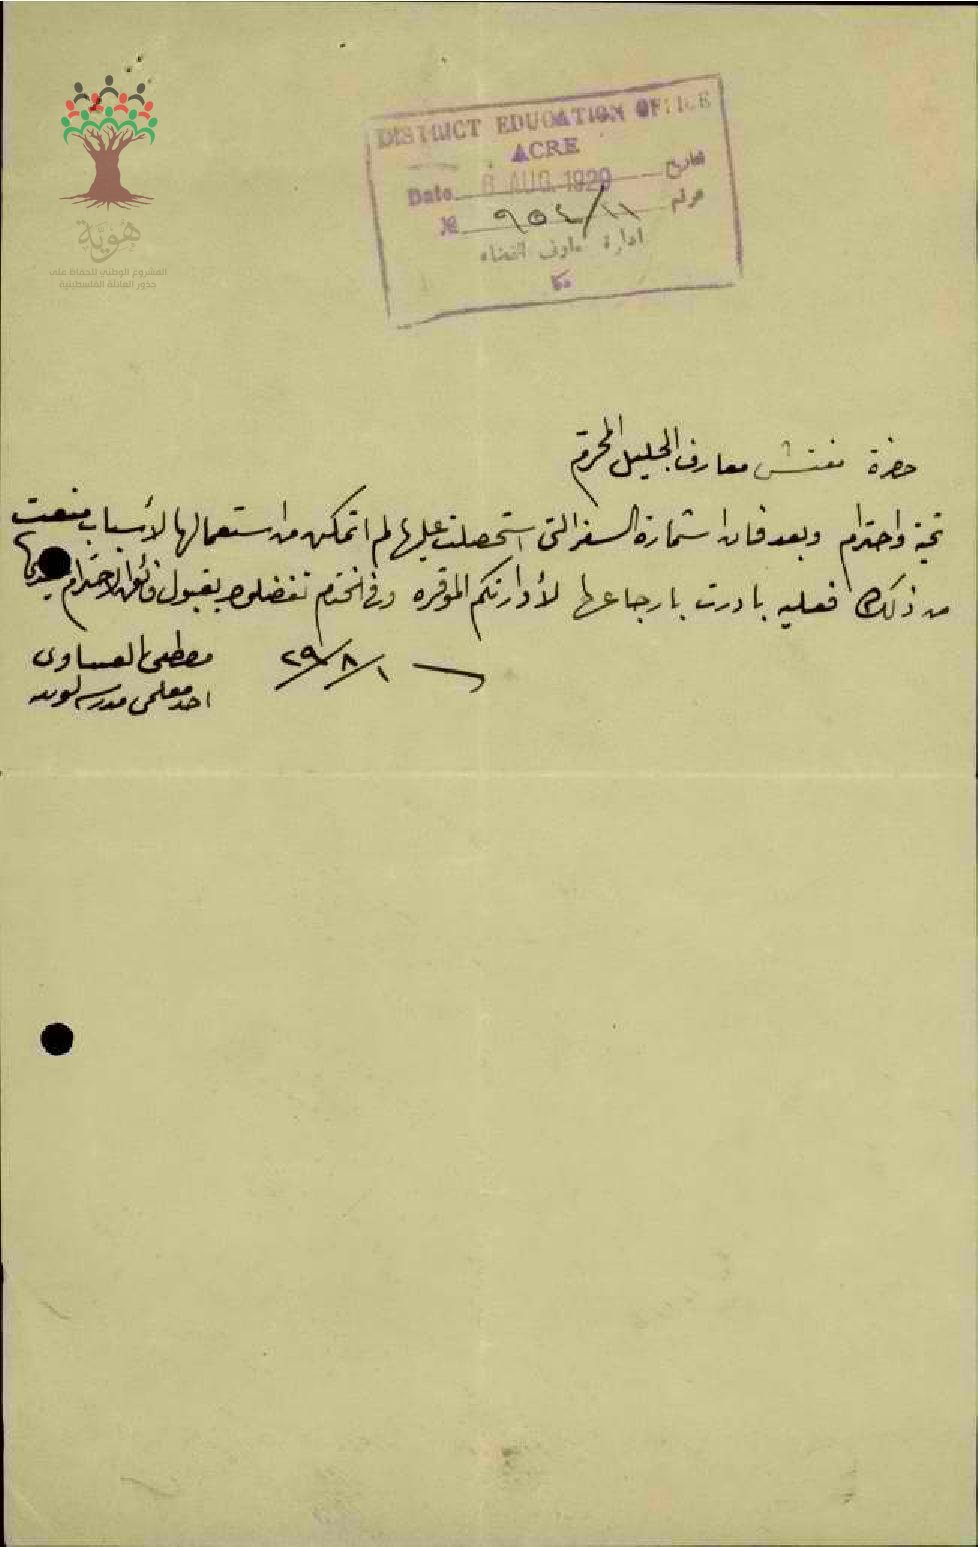 هَوِيَّة
المشروع الوطني للحفاظ على
جذور العائلة الفلسطينية
DISTRICT EDUCATION OFFICE
ACRE
Date 6 AUG. 1929 تاريخ
№ ٩٥٤/١١
ادارة معارف القضاء
عكا
حضرة مفتش معارف الجليل المحترم
تحية واحترام وبعد فان استمارة السفر التي استحصلت عليها لم اتمكن من استعمالها لأسباب منعت
من ذلك فعليه بادرت بارجاعها لأدارتكم الموقره وفي الختام تفضلوا بقبول فائق الاحترام سيدي
٢٩/٨/١ مصطفى العيساوي
احد معلمي مدرسة